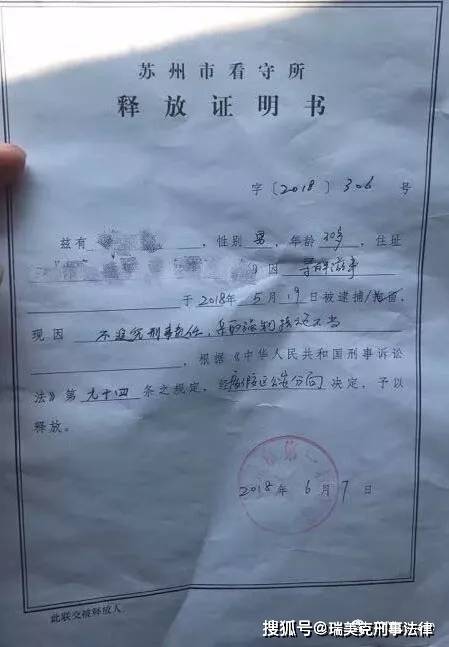 苏州市看守所
释放证明书
字〔2018〕306号
兹有 ，性别 男 ，年龄 30岁 ，住址
）因 寻衅滋事
于 2018年 5月 19日被逮捕/拘留，
现因 不追究刑事责任，采取强制措施不当
，根据《中华人民共和国刑事诉讼
法》第 九十四 条之规定，经 度假区公安分局 决定，予以
释放。
2018年 6月 7日
此联交被释放人
搜狐号@瑞美克刑事法律